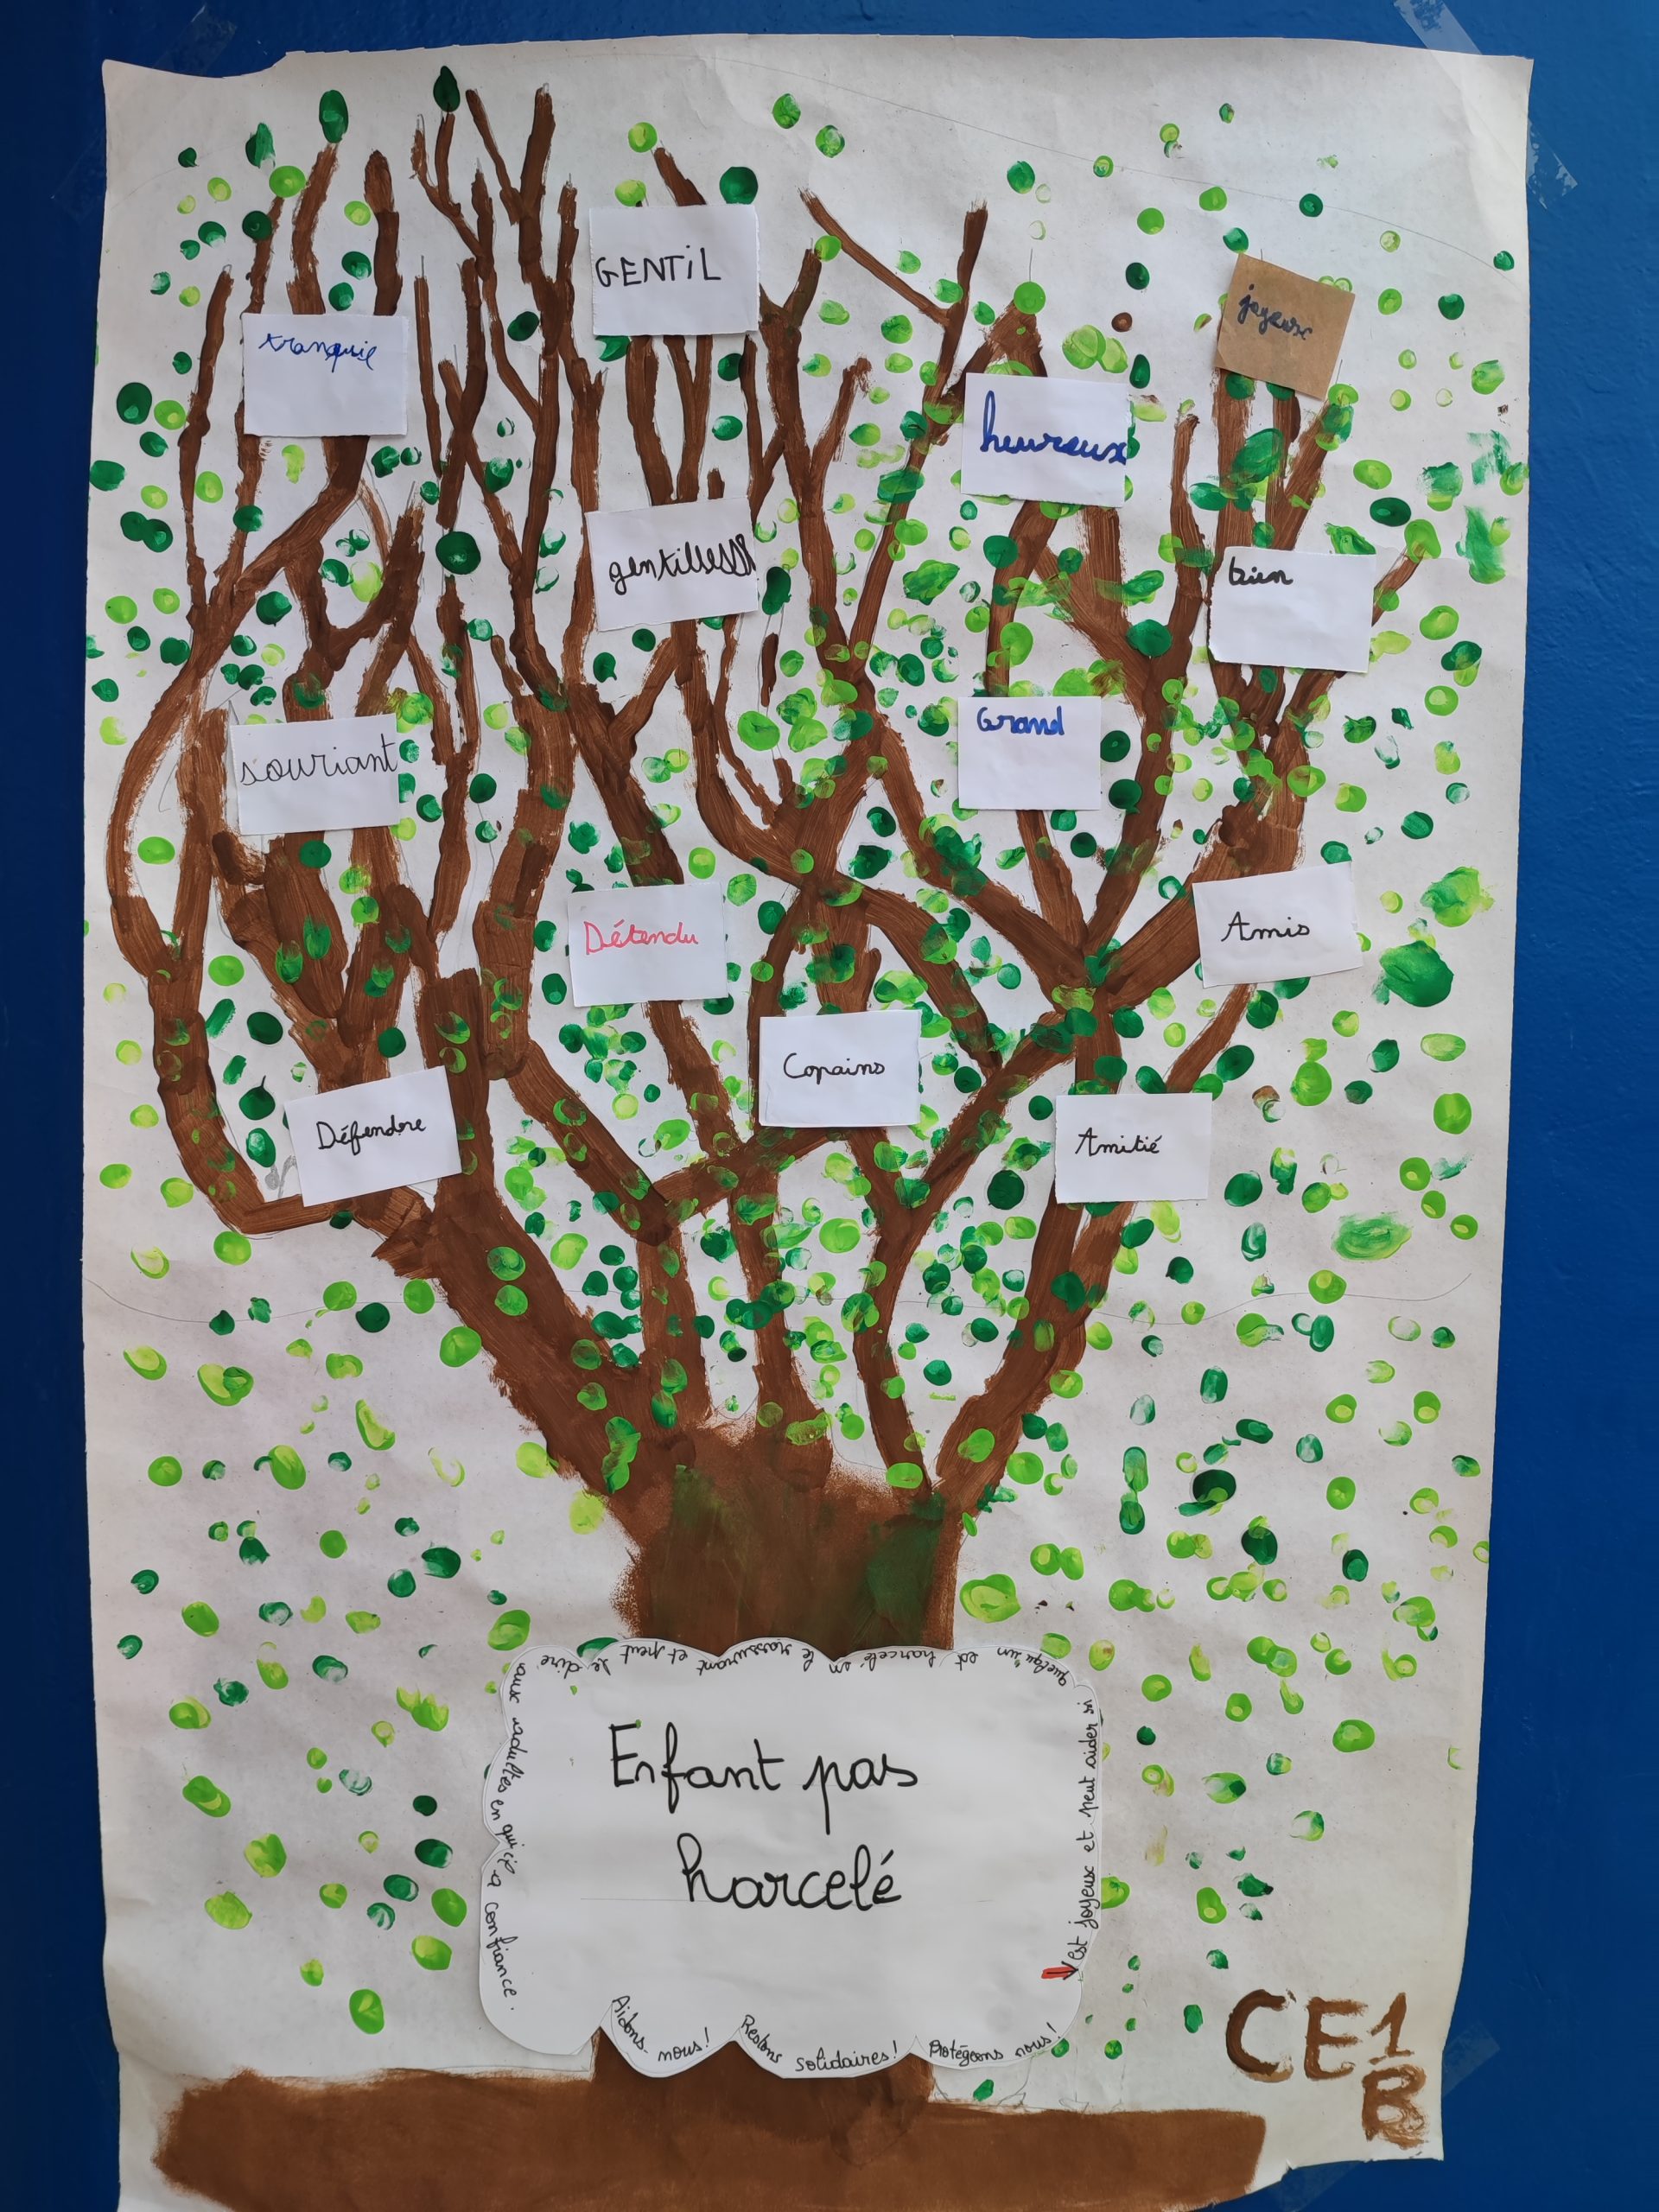 GENTIL
joyeux
tranquil
heureux
gentillesse
bien
Grand
souriant
Détendu
Amis
Copains
Défendre
Amitié
Enfant pas
harcelé
est joyeux et peut aider si
quelqu'un est harcelé en le rassurant et peut le dire
aux adultes en qui j'ai confiance.
Aidons-nous!
Restons solidaires!
Protégeons nous!
CE1
B